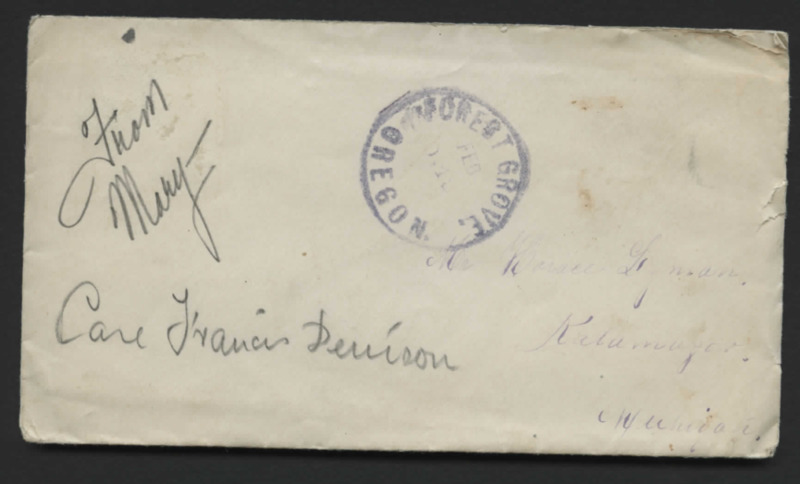 From
Mary
FOREST GROVE,
OREGON.
FEB
Mr Horace Lyman.
Kalamazoo.
Michigan.
Care Francis Denison